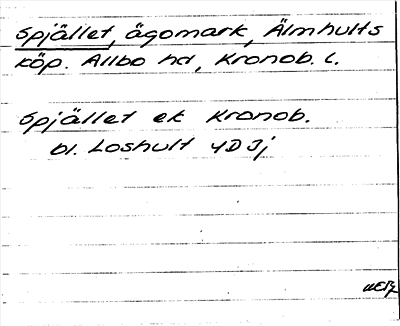 Spjället, ägomark, Älmhults
köp. Allbo hd, Kronob. l.
Spjället ek Kronob.
bl. Loshult 4D3j